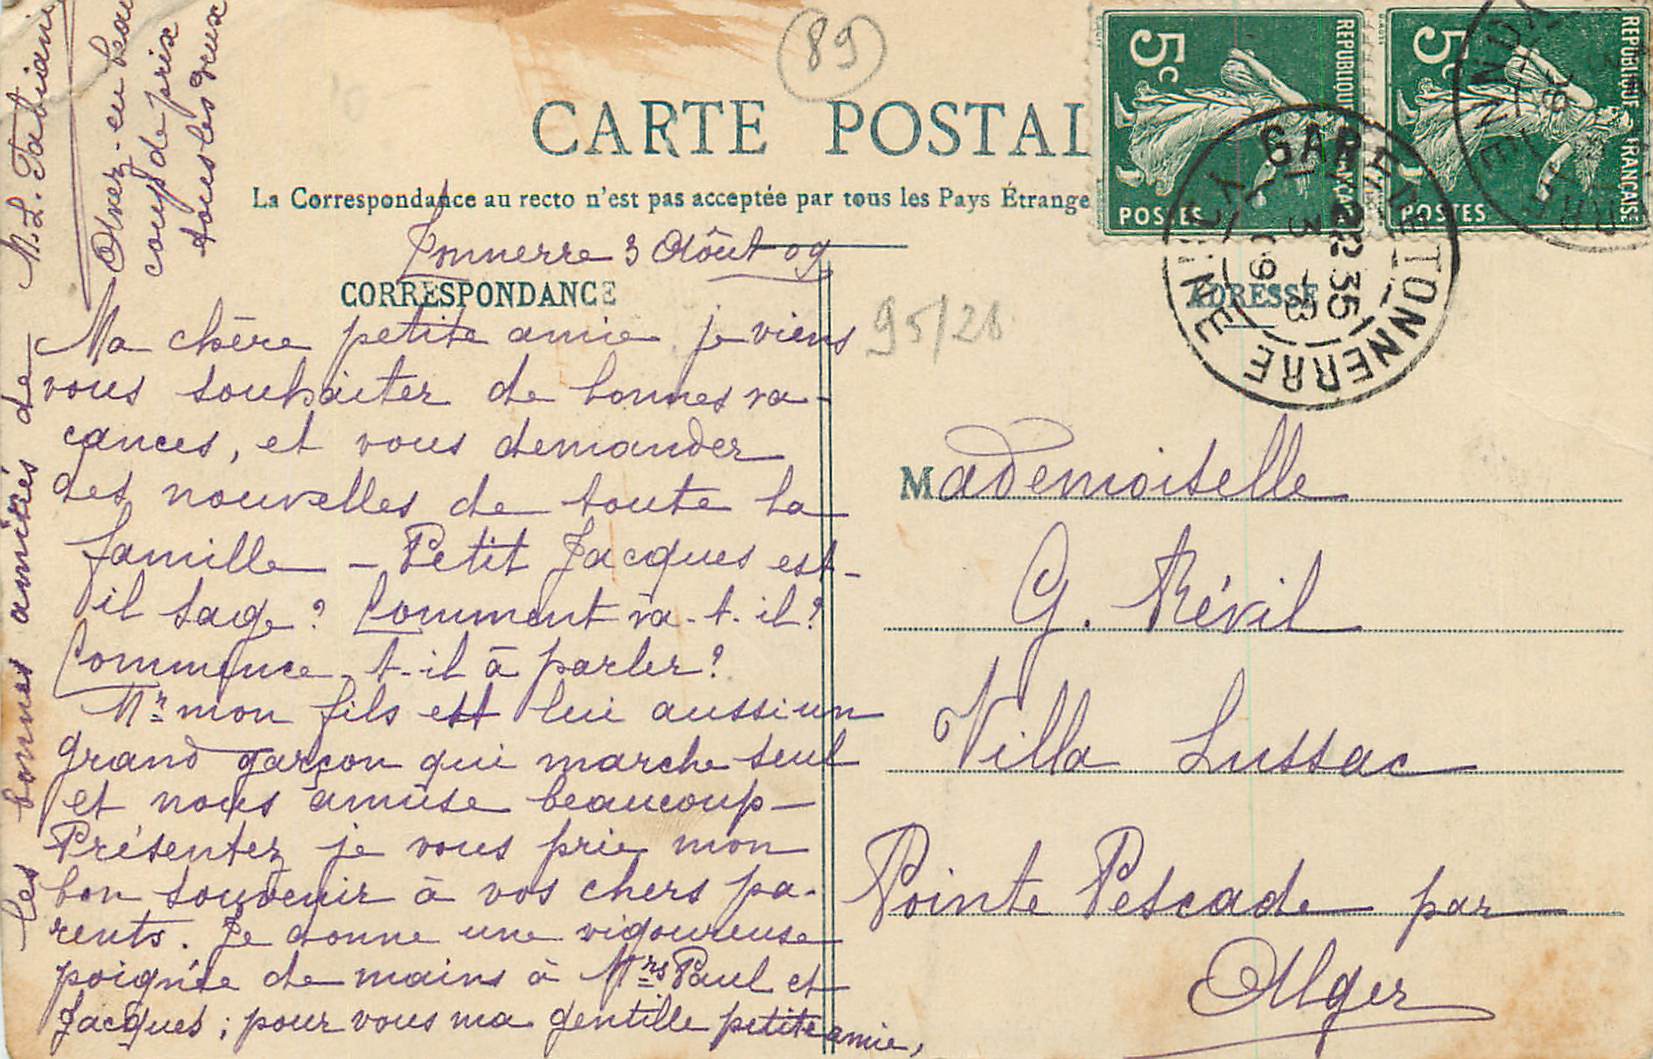 CARTE POSTAL
89
La Correspondance au recto n'est pas acceptée par tous les Pays Étrange
5c
REPUBLIQUE
POSTES
5c
REPUBLIQUE FRANÇAISE
POSTES
GARE DE TONNERRE
YONNE
22 35
3 - 8
09
YONNE
Tonnerre 3 Août 09
CORRESPONDANCE
Ma chère petite amie je viens
vous souhaiter de bonnes va-
cances, et vous demander
des nouvelles de toute la
famille - Petit Jacques est-
il sage ? Comment va-t-il ?
Commence-t-il à parler ?
Mr mon fils est lui aussi un
grand garçon qui marche seul
et nous amuse beaucoup -
Présentez je vous prie mon
bon souvenir à vos chers pa-
rents. Je donne une vigoureuse
poignée de mains à Mrs Paul et
Jacques ; pour vous ma gentille petite amie,
les bonnes amitiés de
M. L. Fabiani
Avez-en beau
coup de prix
tous les deux
95/28
ADRESSE
Mademoiselle
G. Révil
Villa Lussac
Pointe Pescade par
Alger